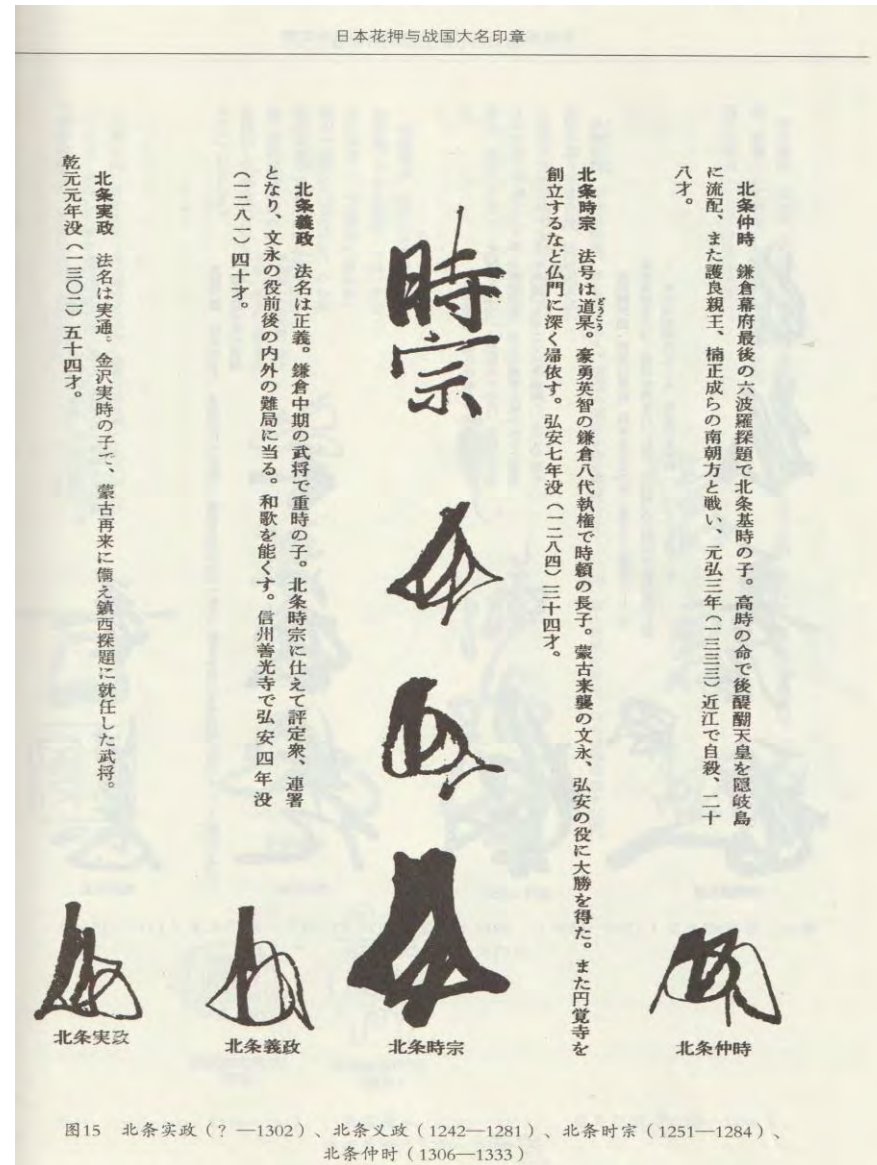 日本花押与战国大名印章
北条仲時　鎌倉幕府最後の六波羅探題で北条基時の子。高時の命で後醍醐天皇を隠岐島
に流配、また護良親王、楠正成らの南朝方と戦い、元弘三年（一三三三）近江で自殺、二十
八才。
北条時宗　法号は道杲。豪勇英智の鎌倉八代執権で時頼の長子。蒙古来襲の文永、弘安の役に大勝を得た。また円覚寺を
どうこう
創立するなど仏門に深く帰依す。弘安七年没（一二八四）三十四才。
時宗
北条義政　法名は正義。鎌倉中期の武将で重時の子。北条時宗に仕えて評定衆、連署
となり、文永の役前後の内外の難局に当る。和歌を能くす。信州善光寺で弘安四年没
（一二八一）四十才。
北条実政　法名は実通。金沢実時の子で、蒙古再来に備え鎮西探題に就任した武将。
乾元元年没（一三〇二）五十四才。
北条実政
北条義政
北条時宗
北条仲時
图15　北条实政（？—1302）、北条义政（1242—1281）、北条时宗（1251—1284）、
北条仲时（1306—1333）